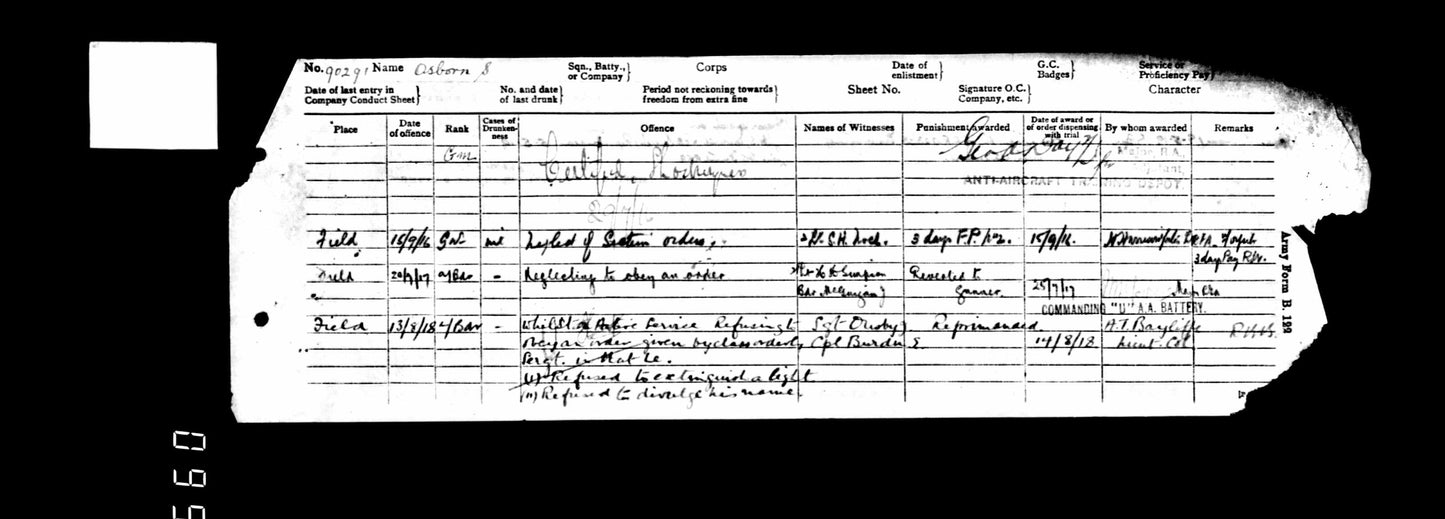 No. 90291 Name Osborn S Sqn., Batty., or Company} Corps Date of enlistment} G.C. Badges} Service or Proficiency Pay}
Date of last entry in Company Conduct Sheet} No. and date of last drunk} Period not reckoning towards freedom from extra fine} Sheet No. Signature O.C. Company, etc.} Character
Place Date of offence Rank Cases of Drunken-ness Offence Names of Witnesses Punishment awarded Date of award or of order dispensing with trial By whom awarded Remarks
Gnr
Certified
ANTI-AIRCRAFT TRAINING DEPOT.
29/7/16
Field 15/9/16 Gnr nil Neglect of Section orders. 2/Lt. S.H. 3 days F.P. No 2. 15/9/16. R.F.A. Forfeits
3 day Pay R.W.
Field 20/7/17 a/Bdr - Neglecting to obey an order Simpson Reverted to
Bdr Gunner. 25/7/17 Major RGA
COMMANDING "U" A.A. BATTERY.
Field 13/8/18 L/Bdr - Whilst on Active Service Refusing to Sgt Reprimanded A.T. Bayliffe
obey an order given by class orderly Cpl Burden E. 14/8/18 Lieut Col
Sergt. in that he.
(1) Refused to extinguish a light
(11) Refused to divulge his name.
Army Form B. 122
560